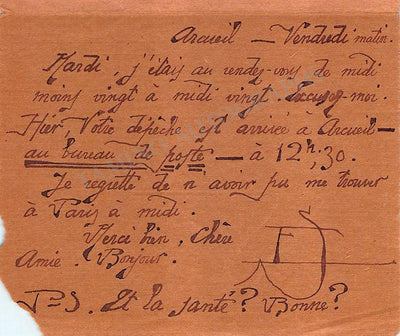 Arcueil — Vendredi matin.
Mardi, j'étais au rendez-vous de midi
moins vingt à midi vingt. Excusez-moi.
Hier, Votre dépêche est arrivée à Arcueil —
au bureau de poste — à 12h,30.
Je regrette de n'avoir pu me trouver
à Paris à midi.
Merci bien, Chère
Amie. Bonjour.
ES
P.S. Et la santé? Bonne?